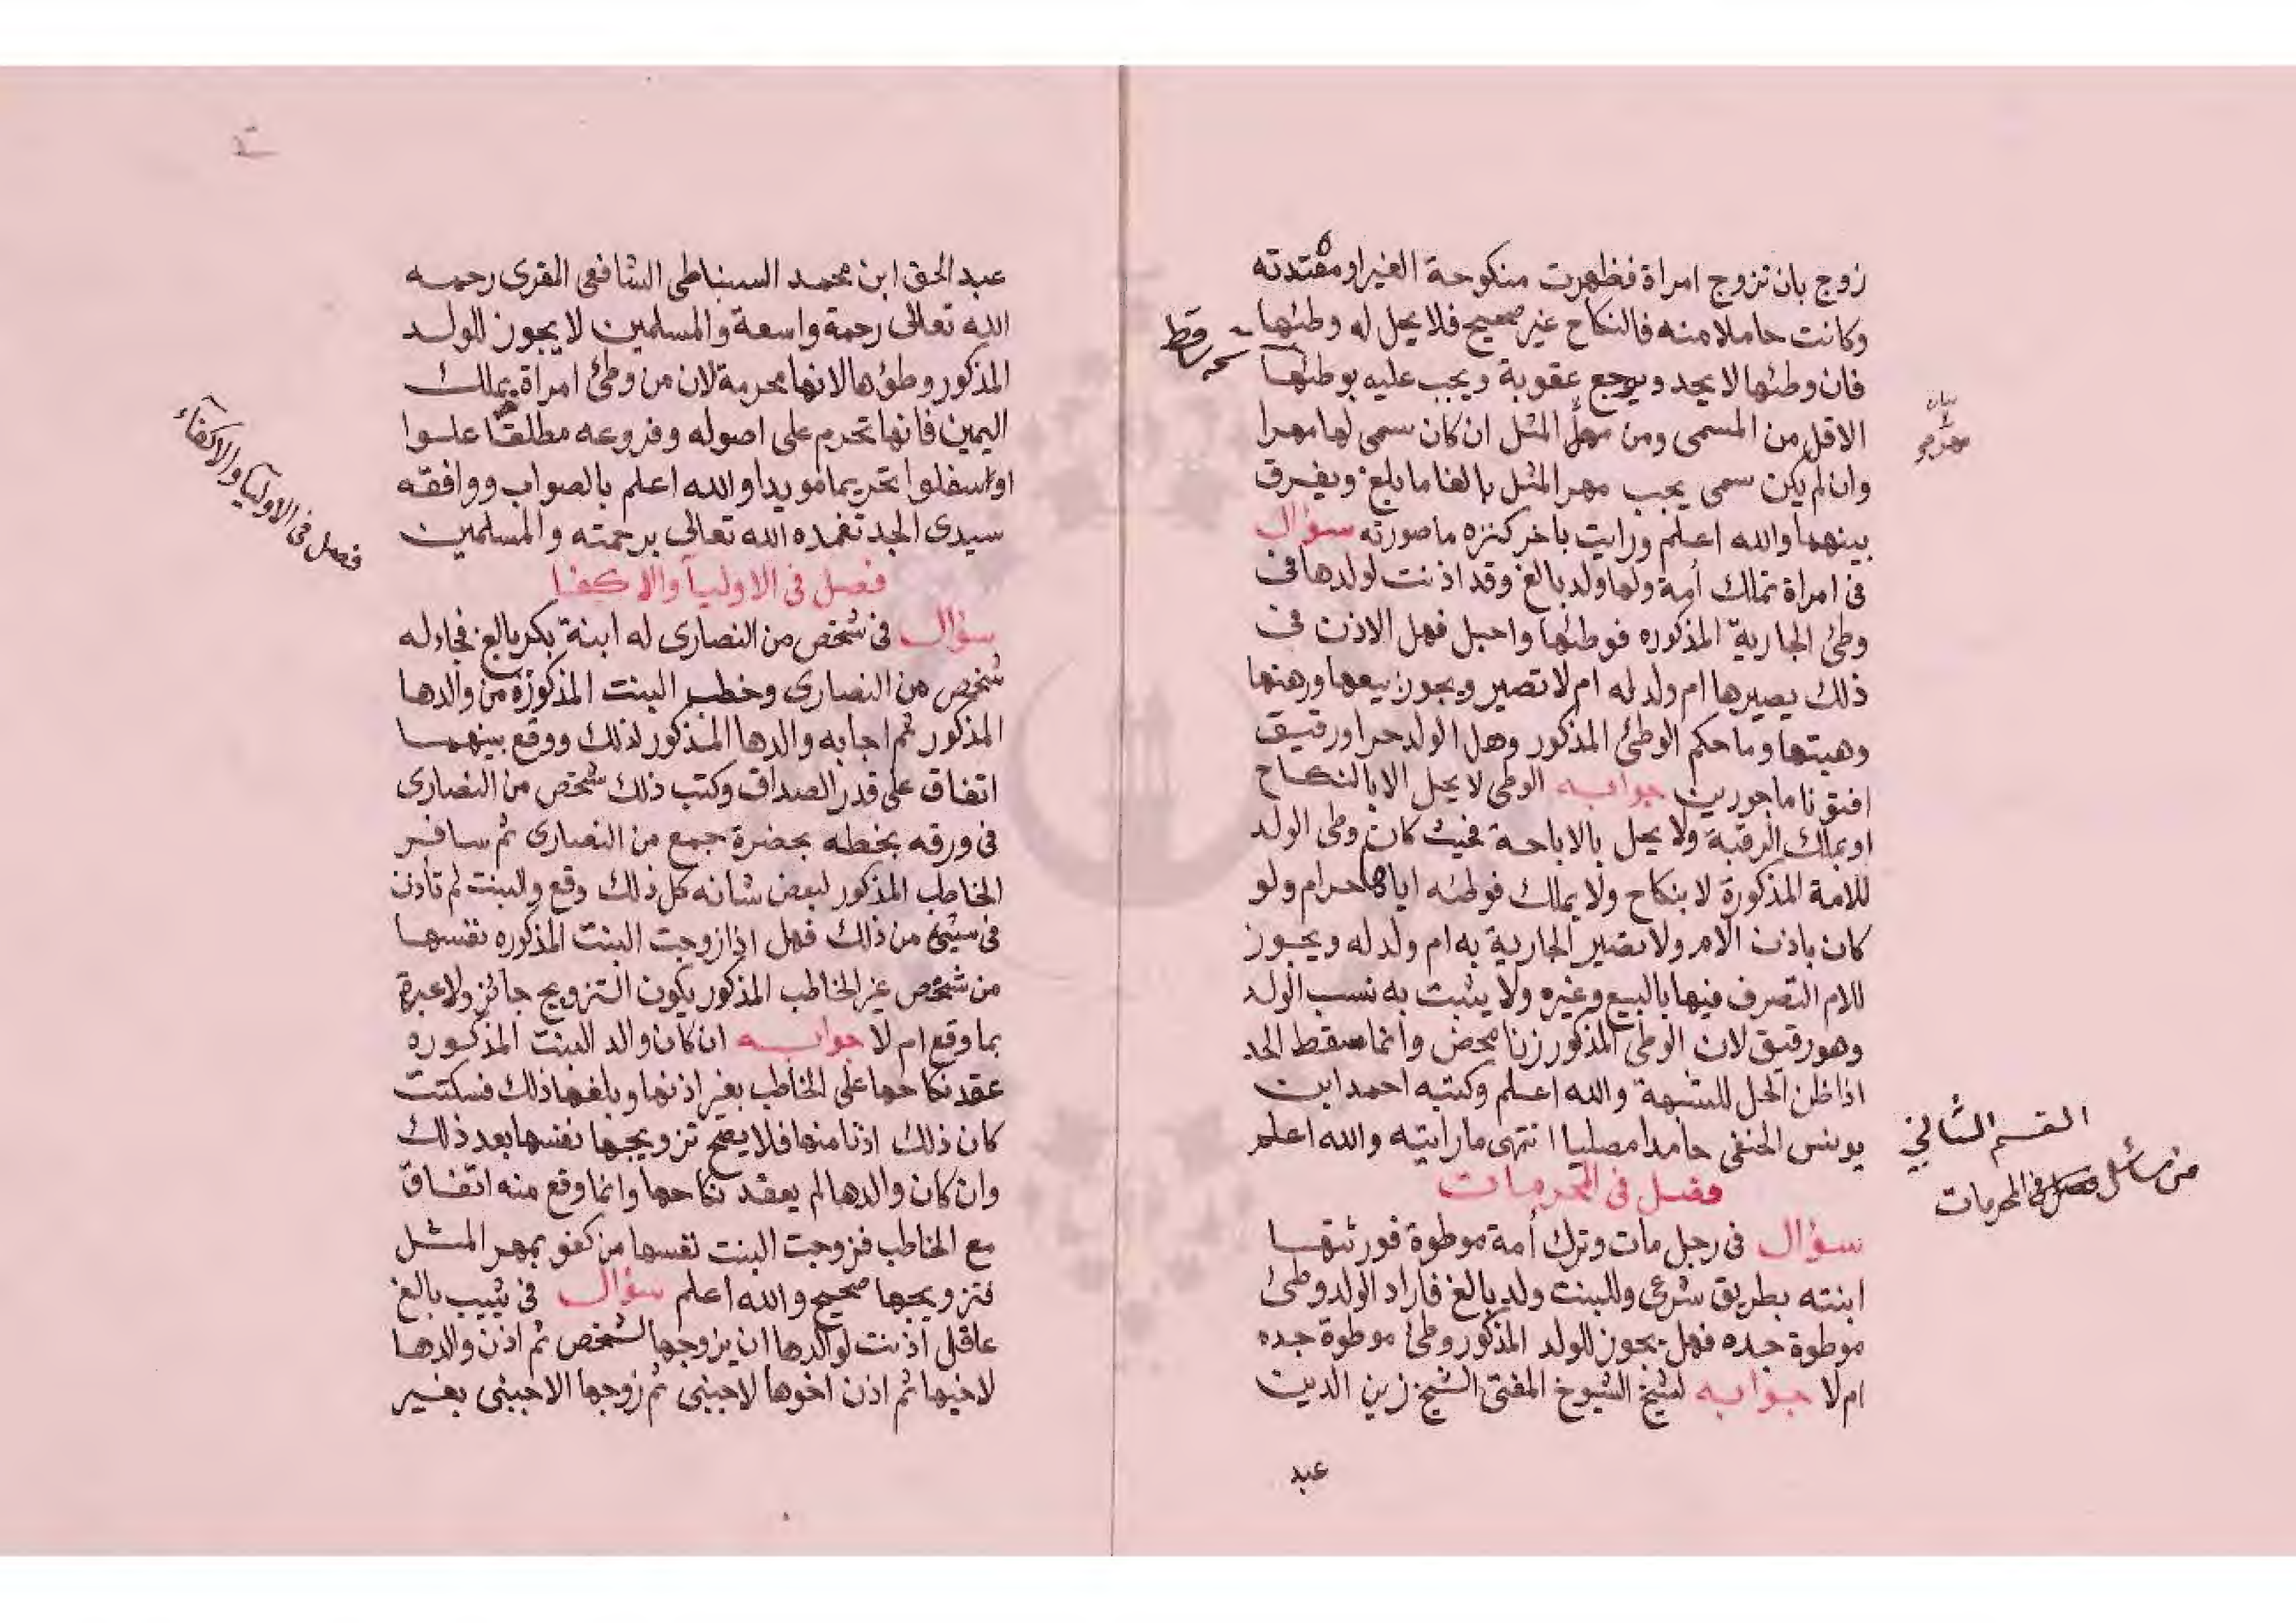 زوج بان تزوج امراة فظهرت منكوحة الغير او معتدته
وكانت حاملا منه فالنكاح غير صحيح فلا يحل له وطئها
فان وطئها لا يحد ويوجع عقوبة ويجب عليه بوطئها
الاقل من المسمى ومن مهر المثل ان كان سمى لها مهرا
وان لم يكن سمى يجب مهر المثل بالغا ما بلغ ويفرق
بينهما والله اعلم ورايت باخر كنزه ما صورته سؤال
فى امراة تملك أمة ولها ولد بالغ وقد اذنت لولدها فى
وطئ الجارية المذكوره فوطئها واحبل فهل الاذن فى
ذلك يصيرها ام ولد له ام لا تصير ويجوز بيعها ورهنها
وهبتها وما حكم الوطئ المذكور وهل الولد حر او رقيق
افتونا ماجورين جوابه الوطى لا يحل الا بالنكاح
او بملك الرقبة ولا يحل بالاباحة فحيث كان وطى الولد
للامة المذكورة لا بنكاح ولا بملك فوطئه اياها حرام ولو
كان باذن الام ولا تصير الجارية به ام ولد له ويجوز
للام التصرف فيها بالبيع وغيره ولا يثبت به نسب الولد
وهو رقيق لان الوطئ المذكور زنا محض وانما سقط الحد
اذا ظن الحل للشبهة والله اعلم وكتبه احمد ابن
يونس الحنفى حامدا مصليا انتهى ما رايته والله اعلم
فصل فى المحرمات
سؤال فى رجل مات وترك أمة موطوة فورثتها
ابنته بطريق شرعى وللبنت ولد بالغ فاراد الولد وطئ
موطوة جده فهل يجوز للولد المذكور وطئ موطوة جده
ام لا جوابه لشيخ الشيوخ المفتى الشيخ زين الدين
عبد
ساقط
بيان
القسم الثانى
من مسائل فصل فى المحرمات
عبد الحق ابن محمد السنباطى الشافعى المقرى رحمه
الله تعالى رحمة واسعة والمسلمين لا يجوز للولد
المذكور وطؤها لانها محرمة لان من وطئ امراة بملك
اليمين فانها تحرم على اصوله وفروعه مطلقا علوا
او اسفلوا تحريما مويدا والله اعلم بالصواب ووافقه
سيدى الجد تغمده الله تعالى برحمته والمسلمين
فصل فى الاوليآ والاكفا
سؤال فى شخص من النصارى له ابنة بكر بالغ فجاء له
شخص من النصارى وخطب البنت المذكورة من والدها
المذكور ثم اجابه والدها المذكور لذلك ووقع بينهما
اتفاق على قدر الصداق وكتب ذلك شخص من النصارى
فى ورقه بخطه بحضرة جمع من النصارى ثم سافر
الخاطب المذكور لبعض شانه كل ذلك وقع والبنت لم تأذن
فى شيئ من ذلك فهل اذا زوجت البنت المذكوره نفسها
من شخص غير الخاطب المذكور يكون التزويج جائز ولا عبرة
بما وقع ام لا جوابه ان كان والد البنت المذكوره
عقد نكاحها على الخاطب بغير اذنها وبلغها ذلك فسكتت
كان ذلك اذنا منها فلا يصح تزويجها نفسها بعد ذلك
وان كان والدها لم يعقد نكاحها وانما وقع منه اتفاق
مع الخاطب فزوجت البنت نفسها من كفو بمهر المثل
فتزويجها صحيح والله اعلم سؤال فى ثيب بالغ
عاقل اذنت لوالدها ان يزوجها لشخص ثم اذن والدها
لاخيها ثم اذن اخوها لاجنبى ثم زوجها الاجنبى بغير
فصل فى الاوليآ والاكفآء